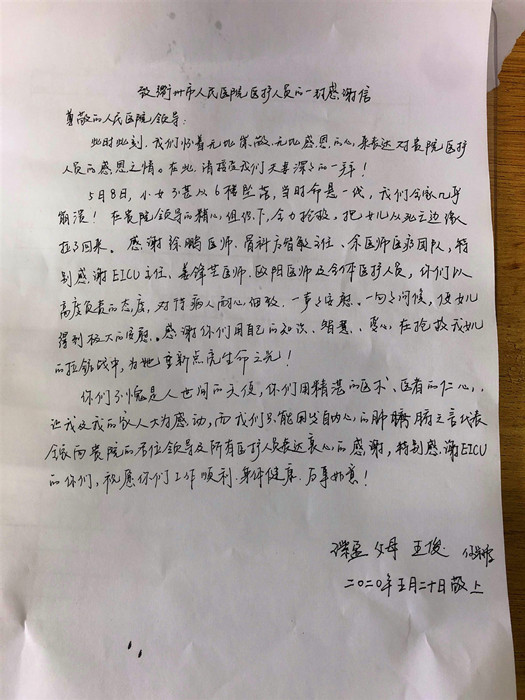 致衢州市人民医院医护人员的一封感谢信
尊敬的人民医院领导:
此时此刻,我们怀着无比崇敬、无比感恩的心,来表达对贵院医护
人员的感恩之情。在此,请接受我们夫妻深深的一拜!
5月8日,小女不甚从6楼坠落,当时命悬一线,我们全家几乎
崩溃!在贵院领导的精心组织下,全力抢救,把女儿从死亡边缘
拉了回来。感谢徐鹏医师、骨科方智敏主任、余医师医疗团队,特
别感谢EICU主任、姜锋医师、欧阳医师及全体医护人员,你们以
高度负责的态度,对待病人耐心、细致,一事事安慰、一句句问候,使女儿
得到极大的安慰。感谢你们用自己的知识、智慧、爱心,在抢救我女儿
的拉锯战中,为她重新点亮生命之光!
你们不愧是人世间的天使,你们用精湛的医术、医者的仁心,
让我及我的家人大为感动,而我们只能因发自内心的肺腑之言代表
全家向贵院的各位领导及所有医护人员表达衷心的感谢,特别感谢EICU
的你们,祝愿你们工作顺利、身体健康、万事如意!
父母 王俊
二〇二〇年五月二十日敬上